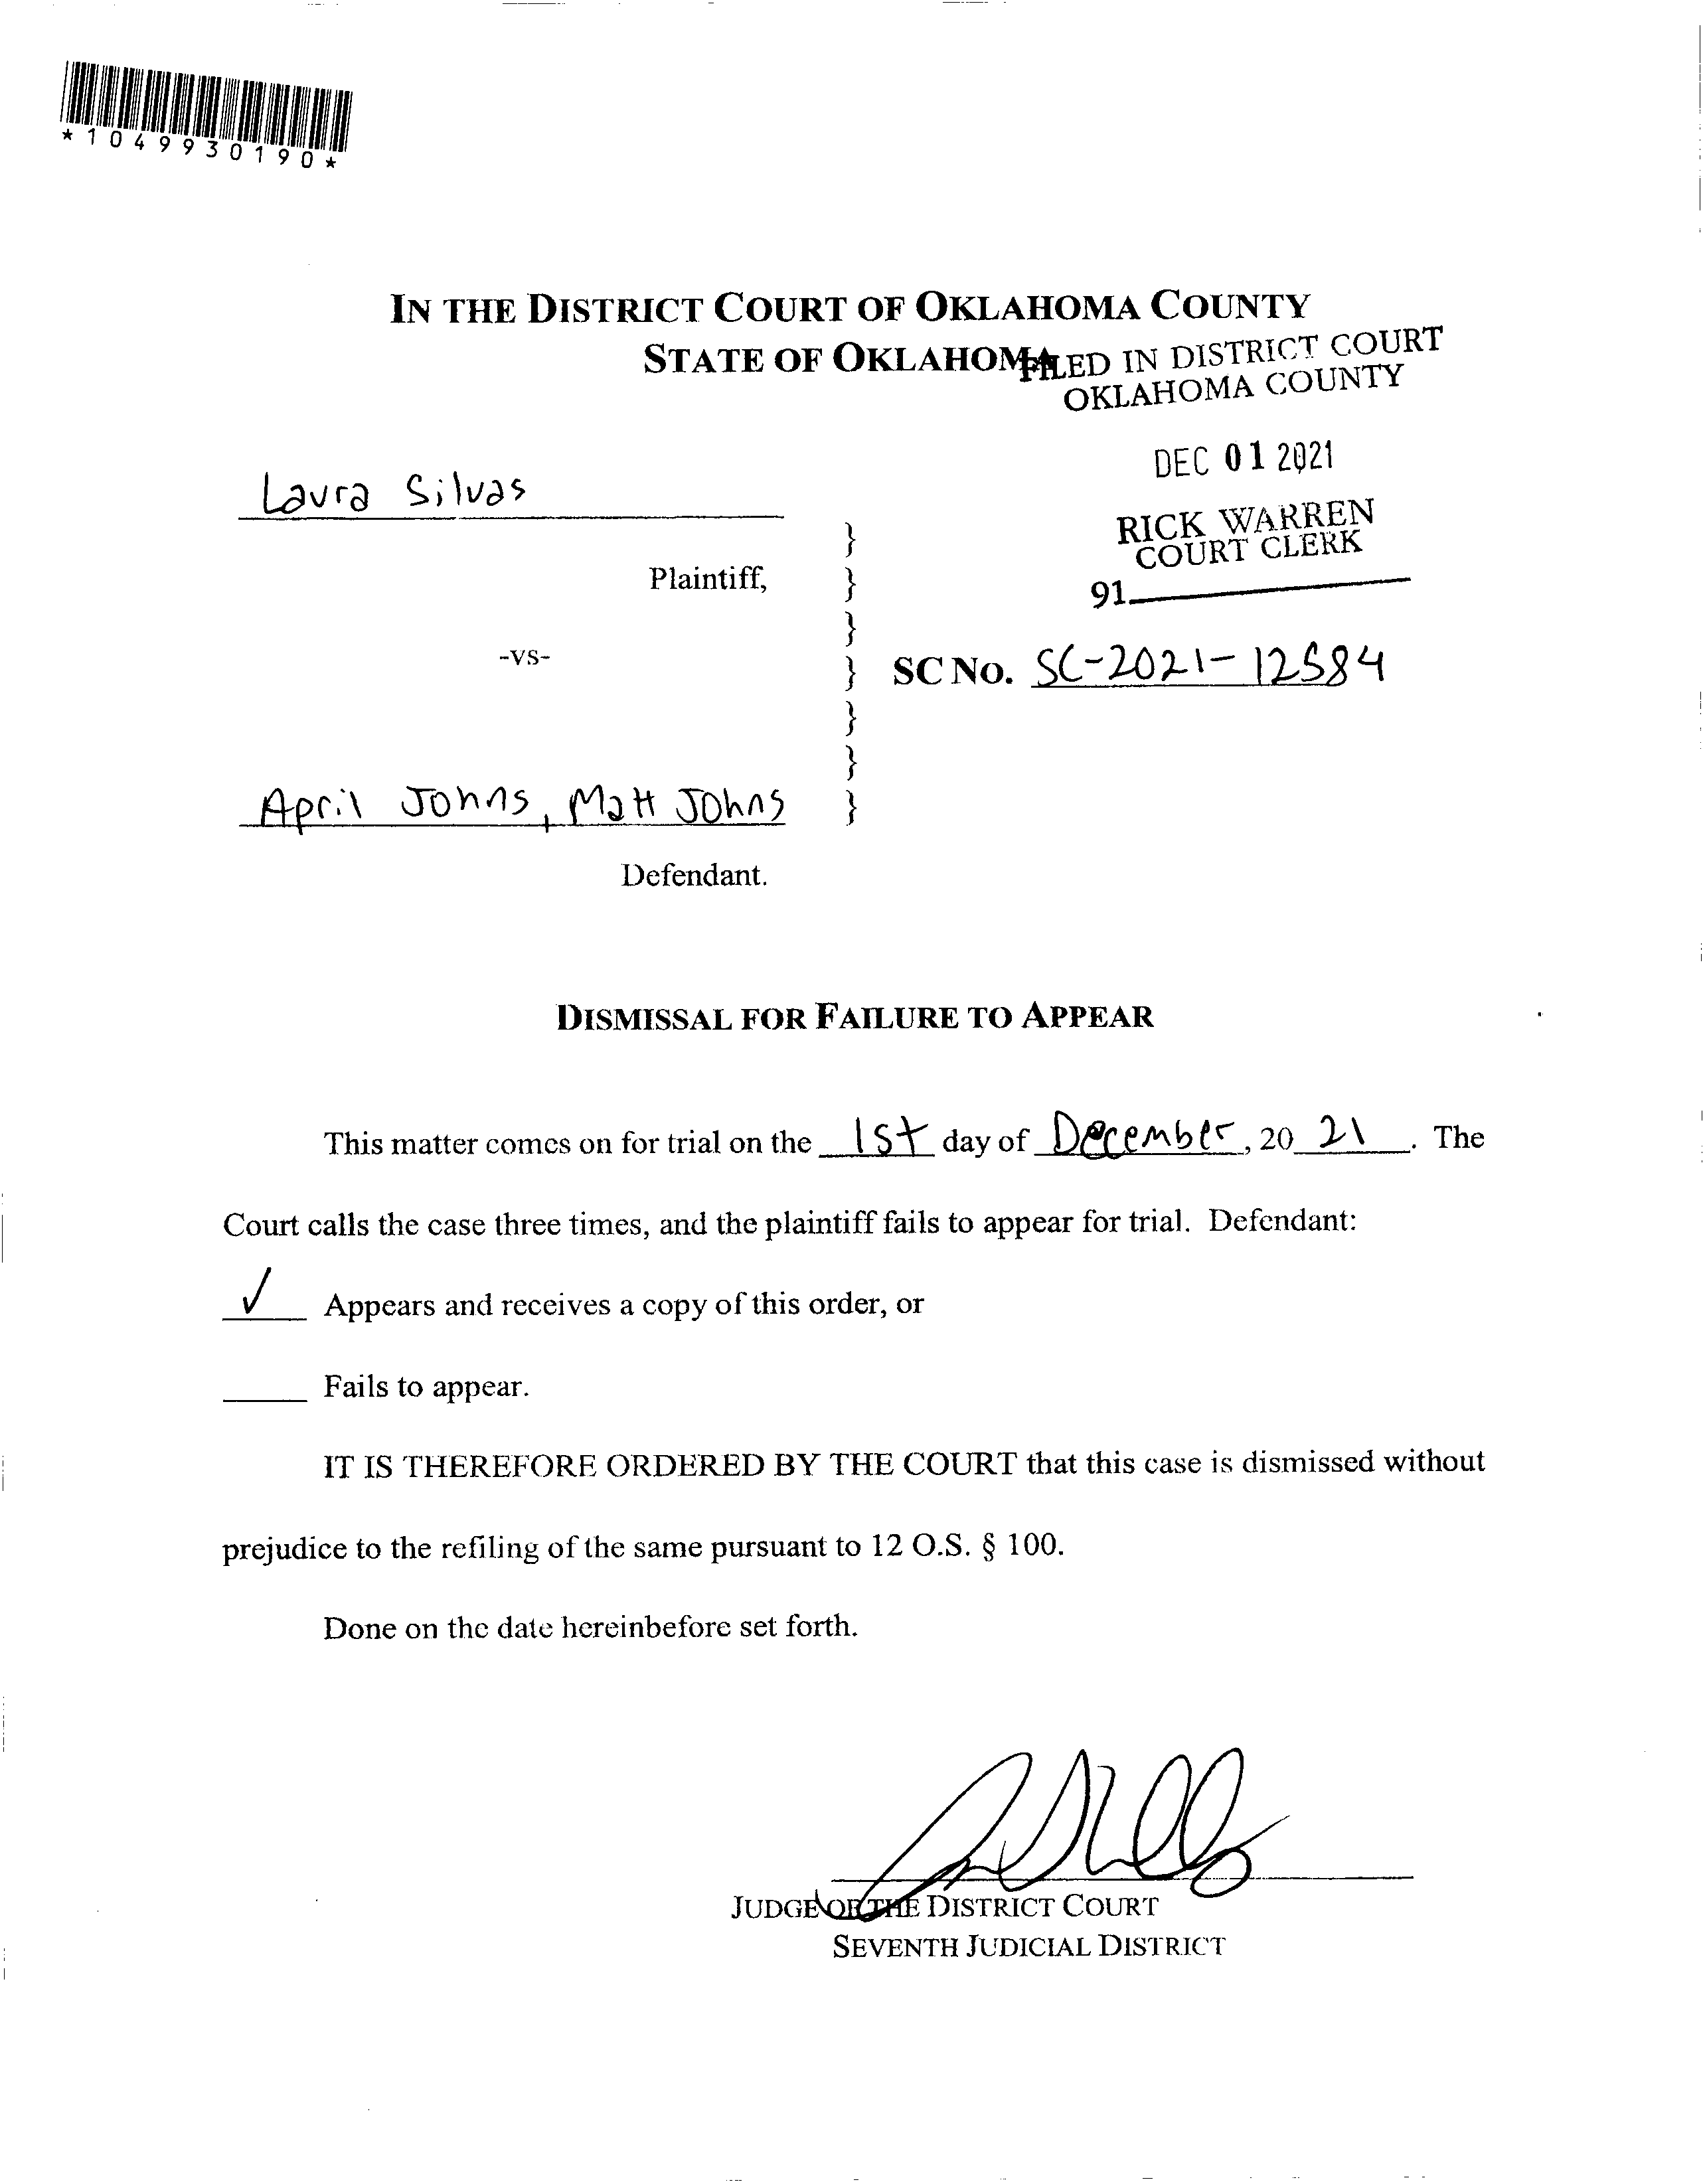 *1049930190*
IN THE DISTRICT COURT OF OKLAHOMA COUNTY
STATE OF OKLAHOMA
FILED IN DISTRICT COURT
OKLAHOMA COUNTY
DEC 01 2021
RICK WARREN
COURT CLERK
91
Laura Silvas
Plaintiff,
-vs-
SC NO. SC-2021-12584
April Johns, Matt Johns
Defendant.
DISMISSAL FOR FAILURE TO APPEAR
This matter comes on for trial on the 1st day of December, 20 21. The
Court calls the case three times, and the plaintiff fails to appear for trial. Defendant:
✓ Appears and receives a copy of this order, or
Fails to appear.
IT IS THEREFORE ORDERED BY THE COURT that this case is dismissed without
prejudice to the refiling of the same pursuant to 12 O.S. § 100.
Done on the date hereinbefore set forth.
JUDGE OF THE DISTRICT COURT
SEVENTH JUDICIAL DISTRICT